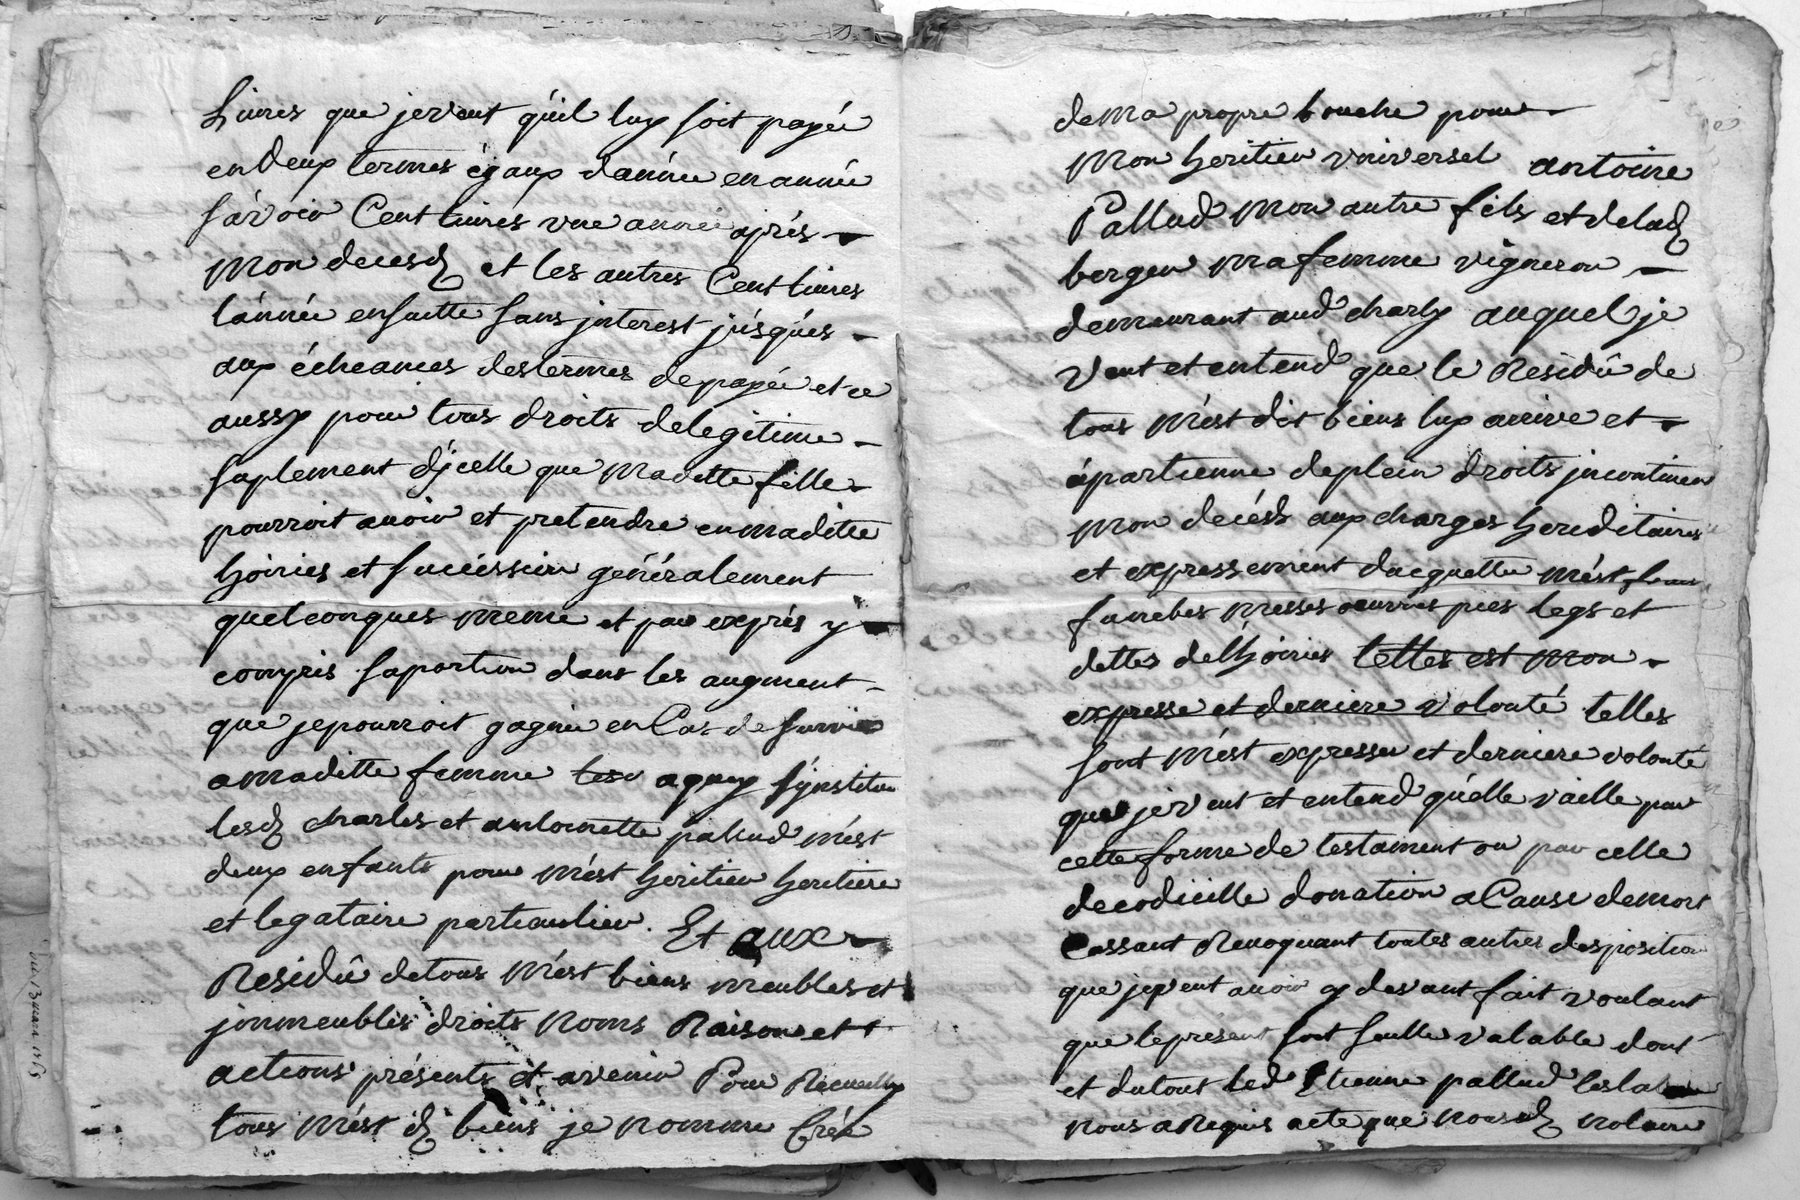 Livres que je veut qu'il luy soit payée
en deux termes égaux d'année en année
sávoir Cent livres une année aprés
Mon decesd et les autres Cent livres
l'année ensuitte sans jnterest júsqúes
aux écheances des termes de payée et ce
aussy pour tous droits delegitime
suplement d'jcelle que Maditte fille
pourroit avoir et pretendre en maditte
hoiries et succéssion généralement
quelconques meme et par exprés y
compris saportion dans les augment
que jepourroit gagnée en Cas de Survie
a maditte femme aquoy s'jnstitue
lesd charles et antoinette pallud mést
deux enfants pour Mést heritier heritiere
et legataire particulier. Et aux
Residû de tous Mést biens meubles et
jnmeubles droits Noms Raisons et
actions présents et avenir Pour Recueilly
tous Mést d biens je nomme Crée
de Ma propre bouche pour
Mon heritier vniversel antoine
Pallud Mon autre fils et delad
berger ma femme vigneron
demeurant aud charly auquel je
veut et entend que le Residû de
tous Mést dit biens luy arrive et
ápartienne deplein droits jncontinen
Mon decésds aux charges hereditaires
et expressement dacquetter mést
funebes Messes oeuvres pies legs et
dettes delhoiries tettes est Mon
expresse et derniere volonté telles
sont Mést expresser et derniere volonté
que je veut et entend qu'elle vaille par
cette forme de testament ou par celle
decodicille donation a Cause demort
Cassant Revoquant toutes autres desposition
que jepeut avoir cy devant fait voulant
que leprésent soit seulle valable dont
et dutout led Etienne pallud
nous a Requis acte que nousd notaire
du 13 mars